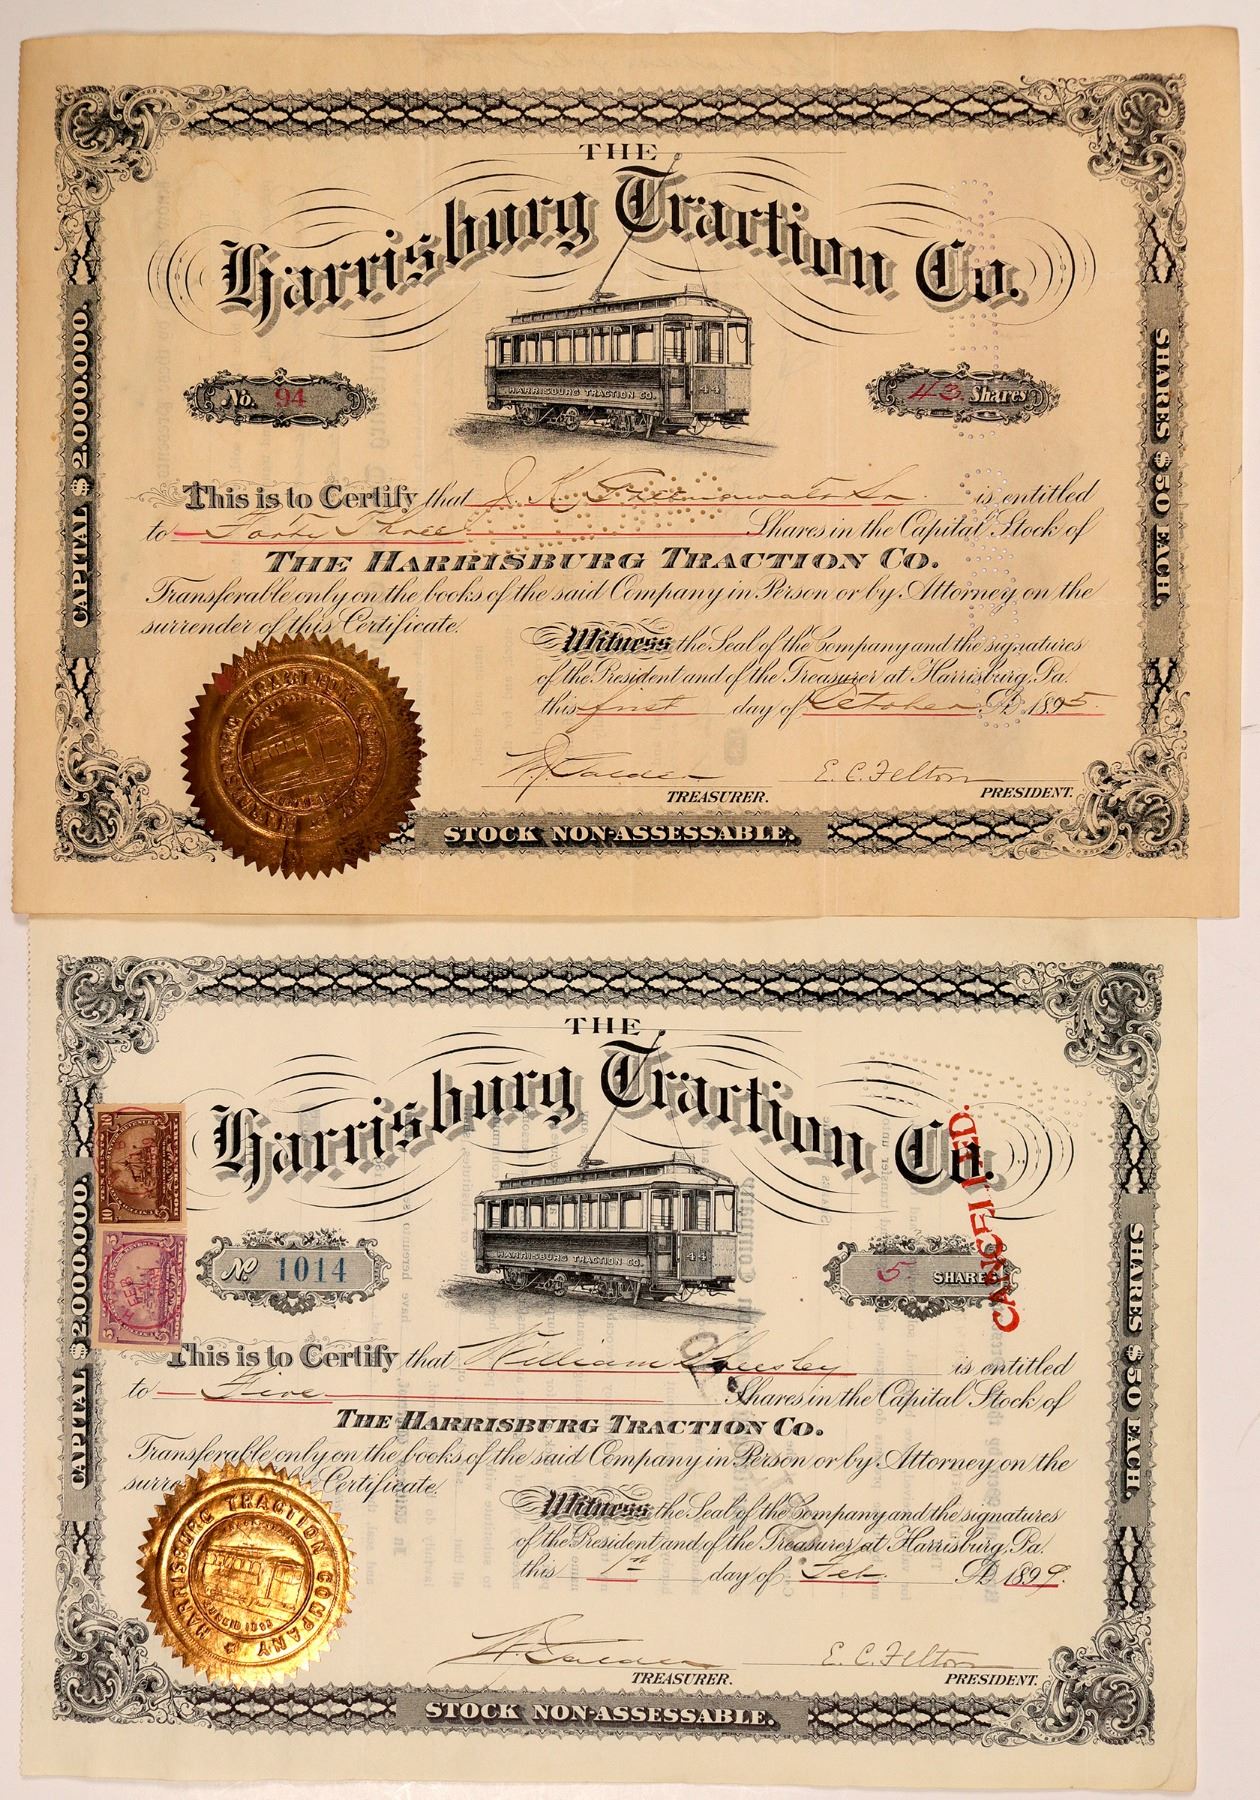 THE
Harrisburg Traction Co.
HARRISBURG TRACTION CO. 44
No. 94
43 Shares
CAPITAL $2.000.000.
SHARES $50 EACH.
This is to Certify that J. K. is entitled
to Forty Three Shares in the Capital Stock of
THE HARRISBURG TRACTION CO.
Transferable only on the books of the said Company in Person or by Attorney on the
surrender of this Certificate.
Witness the Seal of the Company and the signatures
of the President and of the Treasurer at Harrisburg, Pa.
this first day of October A.D. 1895
E. C. Felton
TREASURER. PRESIDENT.
STOCK NON-ASSESSABLE.
THE
Harrisburg Traction Co.
CANCELLED.
HARRISBURG TRACTION CO. 44
No 1014
5 SHARES
CAPITAL $2.000.000.
SHARES $50 EACH.
This is to Certify that William is entitled
to Five Shares in the Capital Stock of
THE HARRISBURG TRACTION CO.
Transferable only on the books of the said Company in Person or by Attorney on the
surre Certificate.
HARRISBURG TRACTION COMPANY
Witness the Seal of the Company and the signatures
of the President and of the Treasurer at Harrisburg, Pa.
this 1st day of Feb. A.D. 1899.
E. C. Felton
TREASURER. PRESIDENT.
STOCK NON-ASSESSABLE.